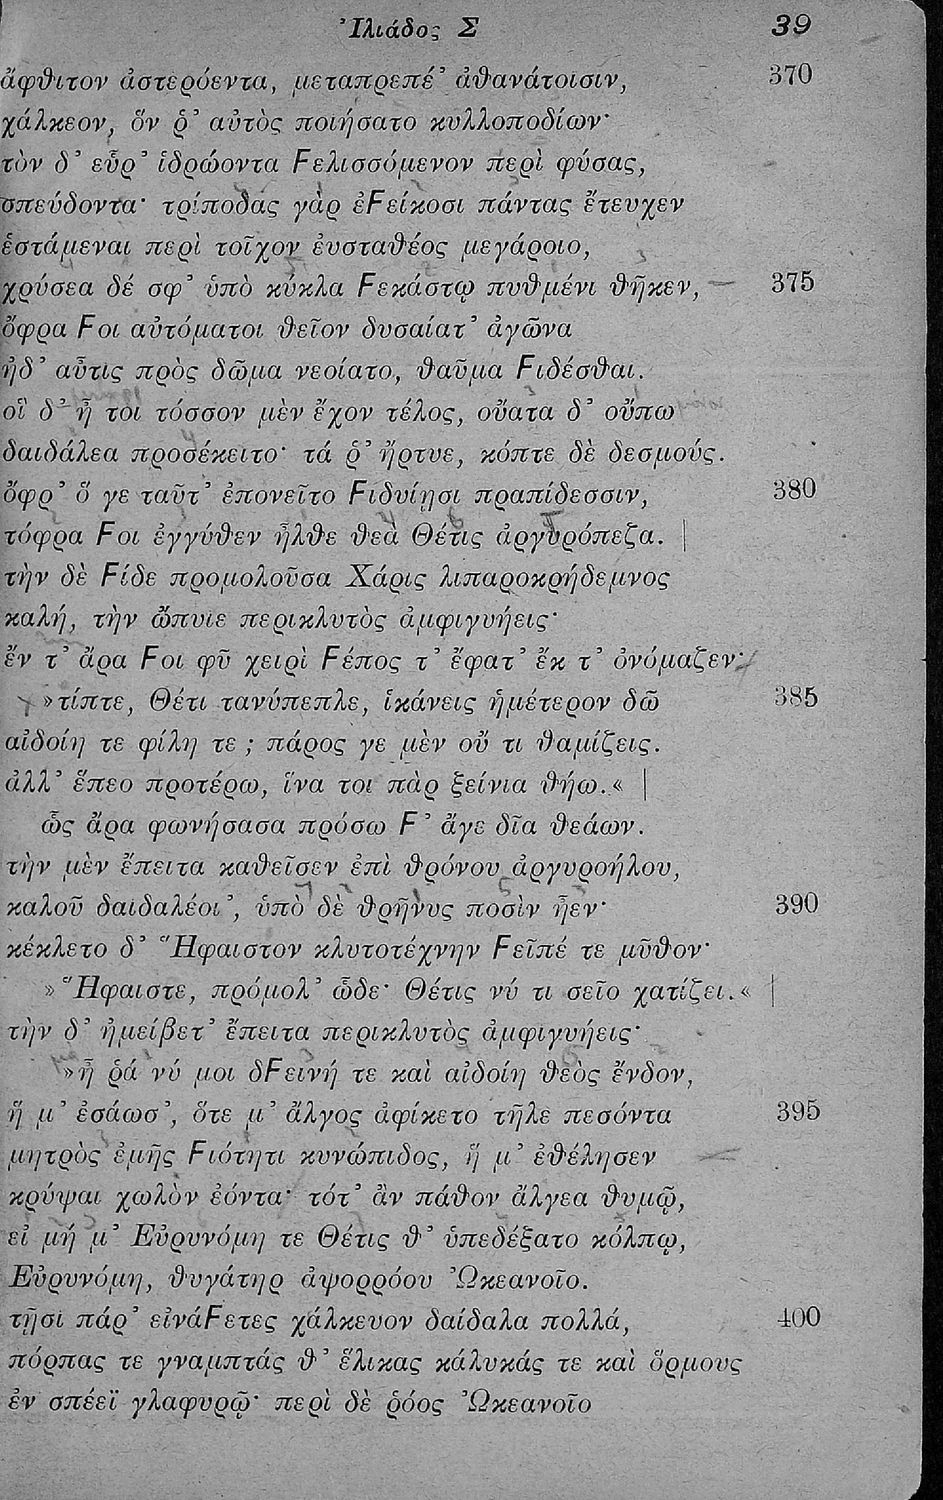 Ἰλιάδος Σ 39
ἄφθιτον ἀστερόεντα, μεταπρεπέ᾽ ἀθανάτοισιν, 370
χάλκεον, ὅν ῥ᾽ αὐτὸς ποιήσατο κυλλοποδίων·
τὸν δ᾽ εὗρ᾽ ἱδρώοντα Ϝελισσόμενον περὶ φύσας,
σπεύδοντα· τρίποδας γὰρ ἐϜείκοσι πάντας ἔτευχεν
ἑστάμεναι περὶ τοῖχον ἐυσταθέος μεγάροιο,
χρύσεα δέ σφ᾽ ὑπὸ κύκλα Ϝεκάστῳ πυθμένι θῆκεν, 375
ὄφρα Ϝοι αὐτόματοι θεῖον δυσαίατ᾽ ἀγῶνα
ἠδ᾽ αὖτις πρὸς δῶμα νεοίατο, θαῦμα Ϝιδέσθαι.
οἳ δ᾽ ἦ τοι τόσσον μὲν ἔχον τέλος, οὔατα δ᾽ οὔπω
δαιδάλεα προσέκειτο· τά ῥ᾽ ἤρτυε, κόπτε δὲ δεσμούς.
ὄφρ᾽ ὅ γε ταῦτ᾽ ἐπονεῖτο Ϝιδυίῃσι πραπίδεσσιν, 380
τόφρα Ϝοι ἐγγύθεν ἦλθε θεὰ Θέτις ἀργυρόπεζα.
τὴν δὲ Ϝίδε προμολοῦσα Χάρις λιπαροκρήδεμνος
καλή, τὴν ὤπυιε περικλυτὸς ἀμφιγυήεις·
ἔν τ᾽ ἄρα Ϝοι φῦ χειρὶ Ϝέπος τ᾽ ἔφατ᾽ ἔκ τ᾽ ὀνόμαζεν·
»τίπτε, Θέτι τανύπεπλε, ἱκάνεις ἡμέτερον δῶ 385
αἰδοίη τε φίλη τε; πάρος γε μὲν οὔ τι θαμίζεις.
ἀλλ᾽ ἕπεο προτέρω, ἵνα τοι πὰρ ξείνια θήω.«
ὣς ἄρα φωνήσασα πρόσω Ϝ᾽ ἄγε δῖα θεάων.
τὴν μὲν ἔπειτα καθεῖσεν ἐπὶ θρόνου ἀργυροήλου,
καλοῦ δαιδαλέοι᾽, ὑπὸ δὲ θρῆνυς ποσὶν ἦεν· 390
κέκλετο δ᾽ Ἥφαιστον κλυτοτέχνην Ϝεῖπέ τε μῦθον·
»Ἥφαιστε, πρόμολ᾽ ὧδε· Θέτις νύ τι σεῖο χατίζει.«
τὴν δ᾽ ἠμείβετ᾽ ἔπειτα περικλυτὸς ἀμφιγυήεις·
»ἦ ῥά νύ μοι δϜεινή τε καὶ αἰδοίη θεὸς ἔνδον,
ἥ μ᾽ ἐσάωσ᾽, ὅτε μ᾽ ἄλγος ἀφίκετο τῆλε πεσόντα 395
μητρὸς ἐμῆς Ϝιότητι κυνώπιδος, ἥ μ᾽ ἐθέλησεν
κρύψαι χωλὸν ἐόντα· τότ᾽ ἂν πάθον ἄλγεα θυμῷ,
εἰ μή μ᾽ Εὐρυνόμη τε Θέτις θ᾽ ὑπεδέξατο κόλπῳ,
Εὐρυνόμη, θυγάτηρ ἀψορρόου Ὠκεανοῖο.
τῇσι πάρ᾽ εἰνάϜετες χάλκευον δαίδαλα πολλά, 400
πόρπας τε γναμπτάς θ᾽ ἕλικας κάλυκάς τε καὶ ὅρμους
ἐν σπέεϊ γλαφυρῷ· περὶ δὲ ῥόος Ὠκεανοῖο